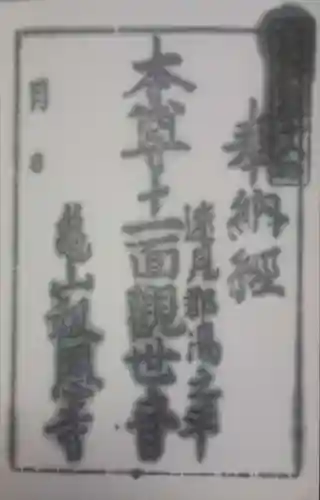 奉納經
速見郡湯之平
本尊十一面觀世音
龜山
寺
月 日